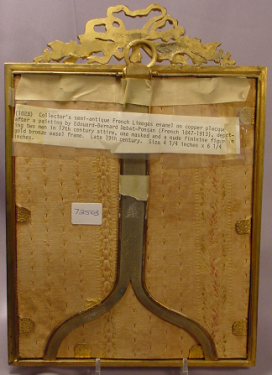 (1023) Collector's semi-antique French Limoges enamel on copper plaque
after a painting by Edouard-Bernard Debat-Ponsan (French 1847-1913), depict-
ing two men in 17th century attire, one masked and a nude
gold bronze easel frame. Late 19th century. Size 4 1/4 inches x 6 1/4
inches.